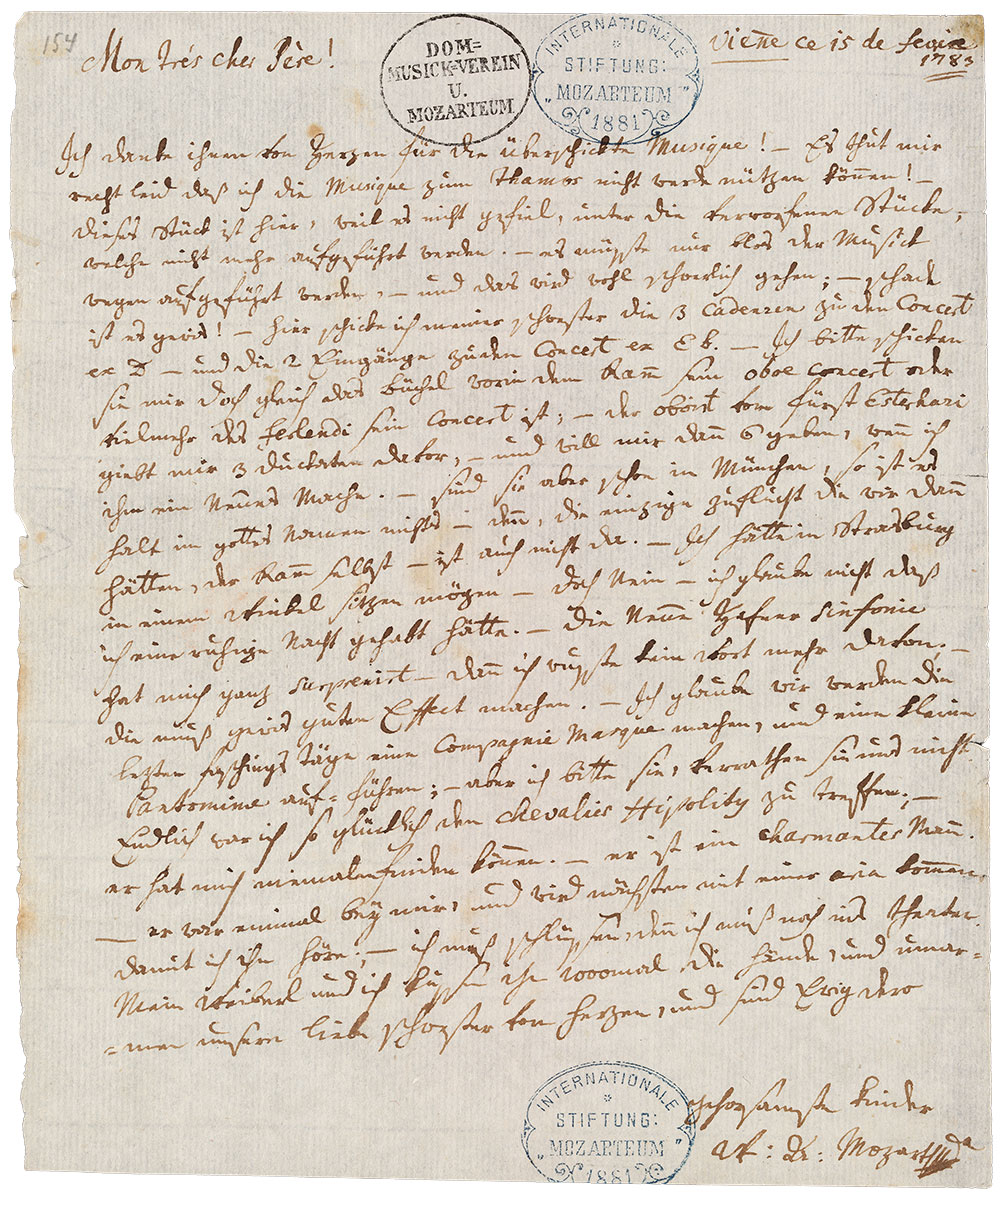 154
DOM=
MUSICK=VEREIN
U.
MOZARTEUM
INTERNATIONALE
STIFTUNG:
„MOZARTEUM”
1881
Vienne ce 15 de fevrie
1783
Mon trés cher Père!
Ich danke ihnen von Herzen für die überschickte Musique! – Es thut mir
recht leid daß ich die Musique zum thamos nicht werde nützen können! –
dieses Stück ist hier, weil es nicht gefiel, unter die verworfenen Stücke,
welche nicht mehr aufgeführt werden. – es müsste nur blos der Musick
wegen aufgeführt werden, – und das wird wohl schwerlich gehen; – schade
ist es gewis! – hier schicke ich meiner schwester die 3 Cadenzen zu den Concert
ex D – und die 2 Eingänge zu den Concert ex Eb. – Ich bitte schicken
sie mir doch gleich das büchel worin dem Ramm sein oboe concert oder
vielmehr des ferlendi sein Concert ist; – der oboist vom fürst Esterhazi
giebt mir 3 duckaten davor, – und will mir dann 6 geben, wenn ich
ihm ein Neues Mache. – sind sie aber schon in München, so ist es
halt im gottes Namen nichts – denn, die einzige zuflucht die wir dann
hätten, der Ramm selbst – ist auch nicht da. – Ich hätte in Strasburg
in einem Winkel sitzen mögen – doch Nein – ich glaube nicht daß
ich eine ruhige Nacht gehabt hätte. – Die Neue Hafner Sinfonie
hat mich ganz surprenirt – dann ich wusste kein Wort mehr davon. –
die muß gewis guten Effect machen. – Ich glaube wir werden die
letzten faschings täge eine Compagnie Masque machen, und eine kleine
Pantomime auf=führen; – aber ich bitte sie, verrathen sie uns nicht.
Endlich war ich so glücklich den chevalier Hipolity zu treffen; –
er hat mich niemalen finden können. – er ist ein charmanter Mann.
– er war einmal bey mir, und wird nächstens mit einer aria kommen,
damit ich ihn höre; – ich muß schlüssen, denn ich muß noch ins theater.
Mein Weiberl und ich küssen ihn 1000mal die hände, und umar=
=men unsere liebe schwester von herzen, und sind Ewig dero
gehorsamste kinder
W: A: Mozart
INTERNATIONALE
STIFTUNG:
„MOZARTEUM”
1881